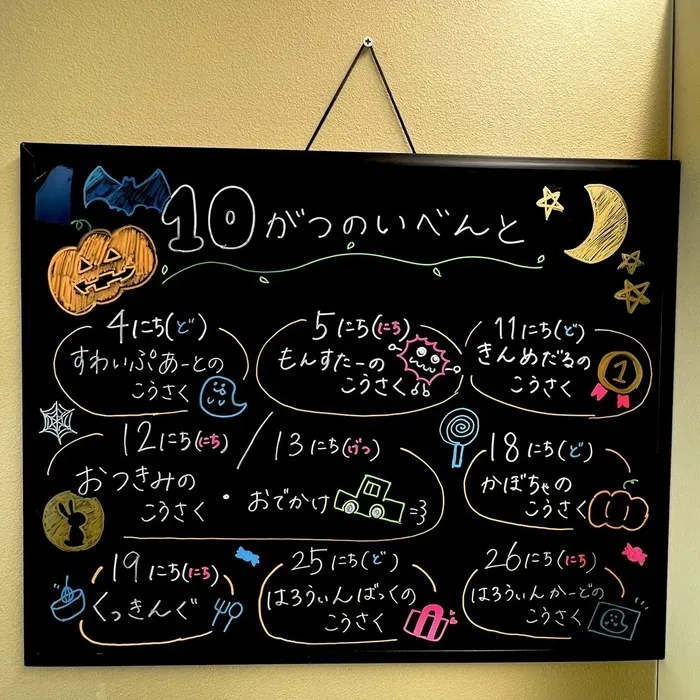 10がつのいべんと
4にち(ど)
すわいぷあーとの
こうさく
5にち(にち)
もんすたーの
こうさく
11にち(ど)
きんめだるの
こうさく
1
12にち(にち)/13にち(げつ)
おつきみの
こうさく・おでかけ
18にち(ど)
かぼちゃの
こうさく
19にち(にち)
くっきんぐ
25にち(ど)
はろうぃんばっくの
こうさく
26にち(にち)
はろうぃんかーどの
こうさく